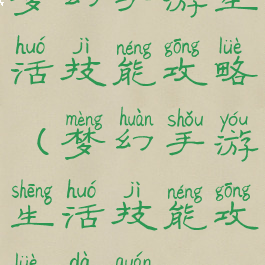 梦幻手游生
huó jì néng gōng lüè
活技能攻略
mèng huàn shǒu yóu
（梦幻手游
shēng huó jì néng gōng
生活技能攻
lüè dà quán